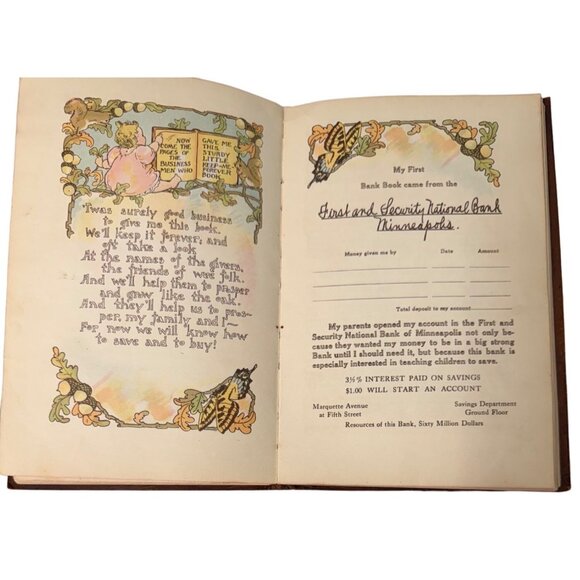 NOW
COME THE
PAGES OF
THE
BUSINESS
MEN WHO
GAVE ME
THIS
STURDY
LITTLE
KEEP-ME-
FOREVER
BOOK
'Twas surely good business
to give me this book.
We'll keep it forever, and
oft take a look
At the names of the givers,
the friends of wee folk.
And we'll help them to prosper
and grow like the oak.
And they'll help us to pros-
per, my family and I—
For now we will know how
to save and to buy!
My First
Bank Book came from the
First and Security National Bank
Minneapolis.
Money given me by Date Amount
Total deposit to my account
My parents opened my account in the First and
Security National Bank of Minneapolis not only be-
cause they wanted my money to be in a big strong
Bank until I should need it, but because this bank is
especially interested in teaching children to save.
3½% INTEREST PAID ON SAVINGS
$1.00 WILL START AN ACCOUNT
Marquette Avenue
at Fifth Street
Savings Department
Ground Floor
Resources of this Bank, Sixty Million Dollars